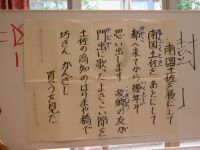 南国土佐を後にして
南国土佐を あとにして
都へ来てから 幾年ぞ
思い出します 故郷の友が
門出に歌った よさこい節を
土佐の高知の はりまや橋で
坊さん かんざし
買うを見た